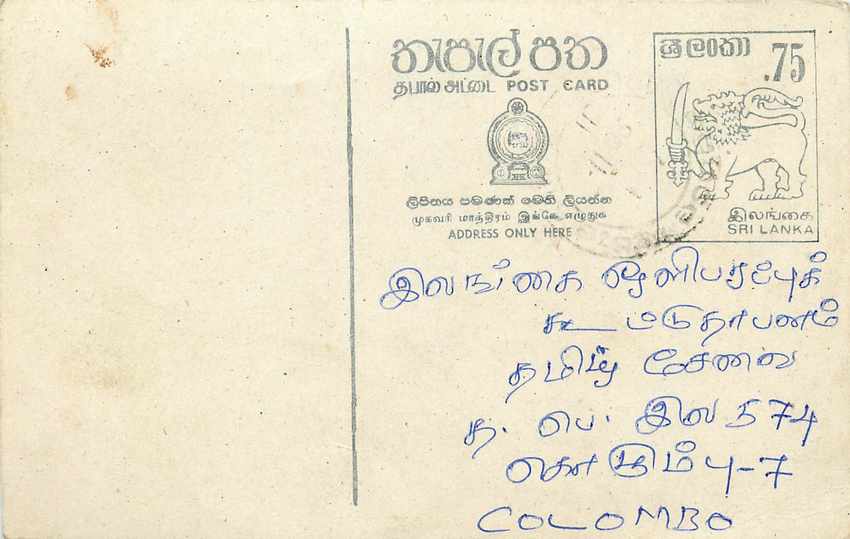 තැපැල් පත
தபால் அட்டை POST CARD
ශ්‍රී ලංකා .75
ලිපිනය පමණක් මෙහි ලියන්න
முகவரி மாத்திரம் இங்கே எழுதுக
ADDRESS ONLY HERE
இலங்கை
SRI LANKA
இலங்கை ஒலிபரப்புக்
கூட்டுதாபனம்
தமிழ் சேவை
த. பெ. இல 574
கொழும்பு-7
COLOMBO